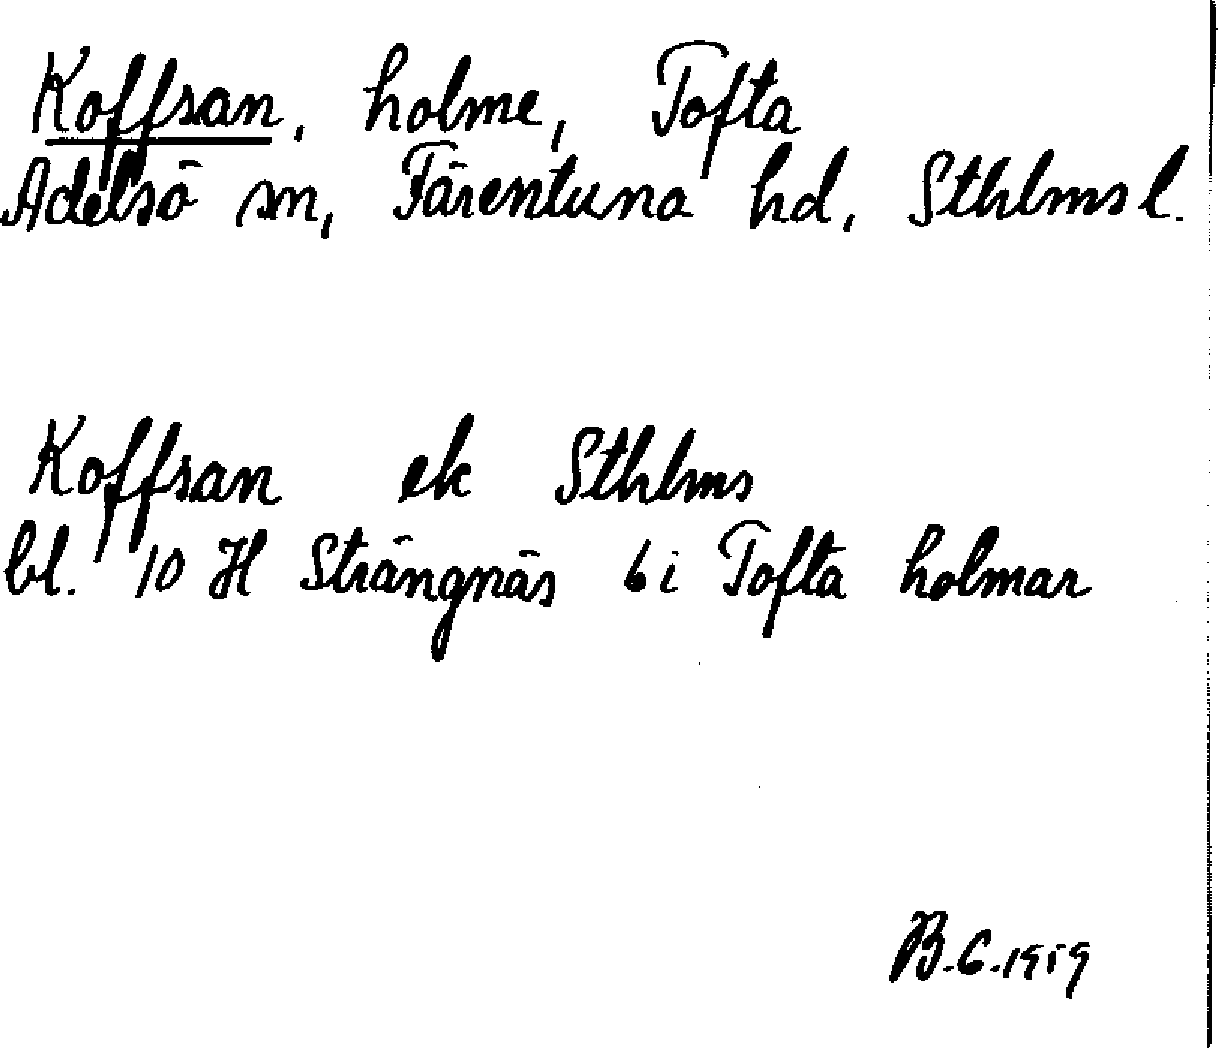 Koffsan, holme, Tofta
Adelsö sn, Färentuna hd, Sthlms l.
Koffsan ek Sthlms
bl. 10 H Strängnäs 6 i Tofta holmar